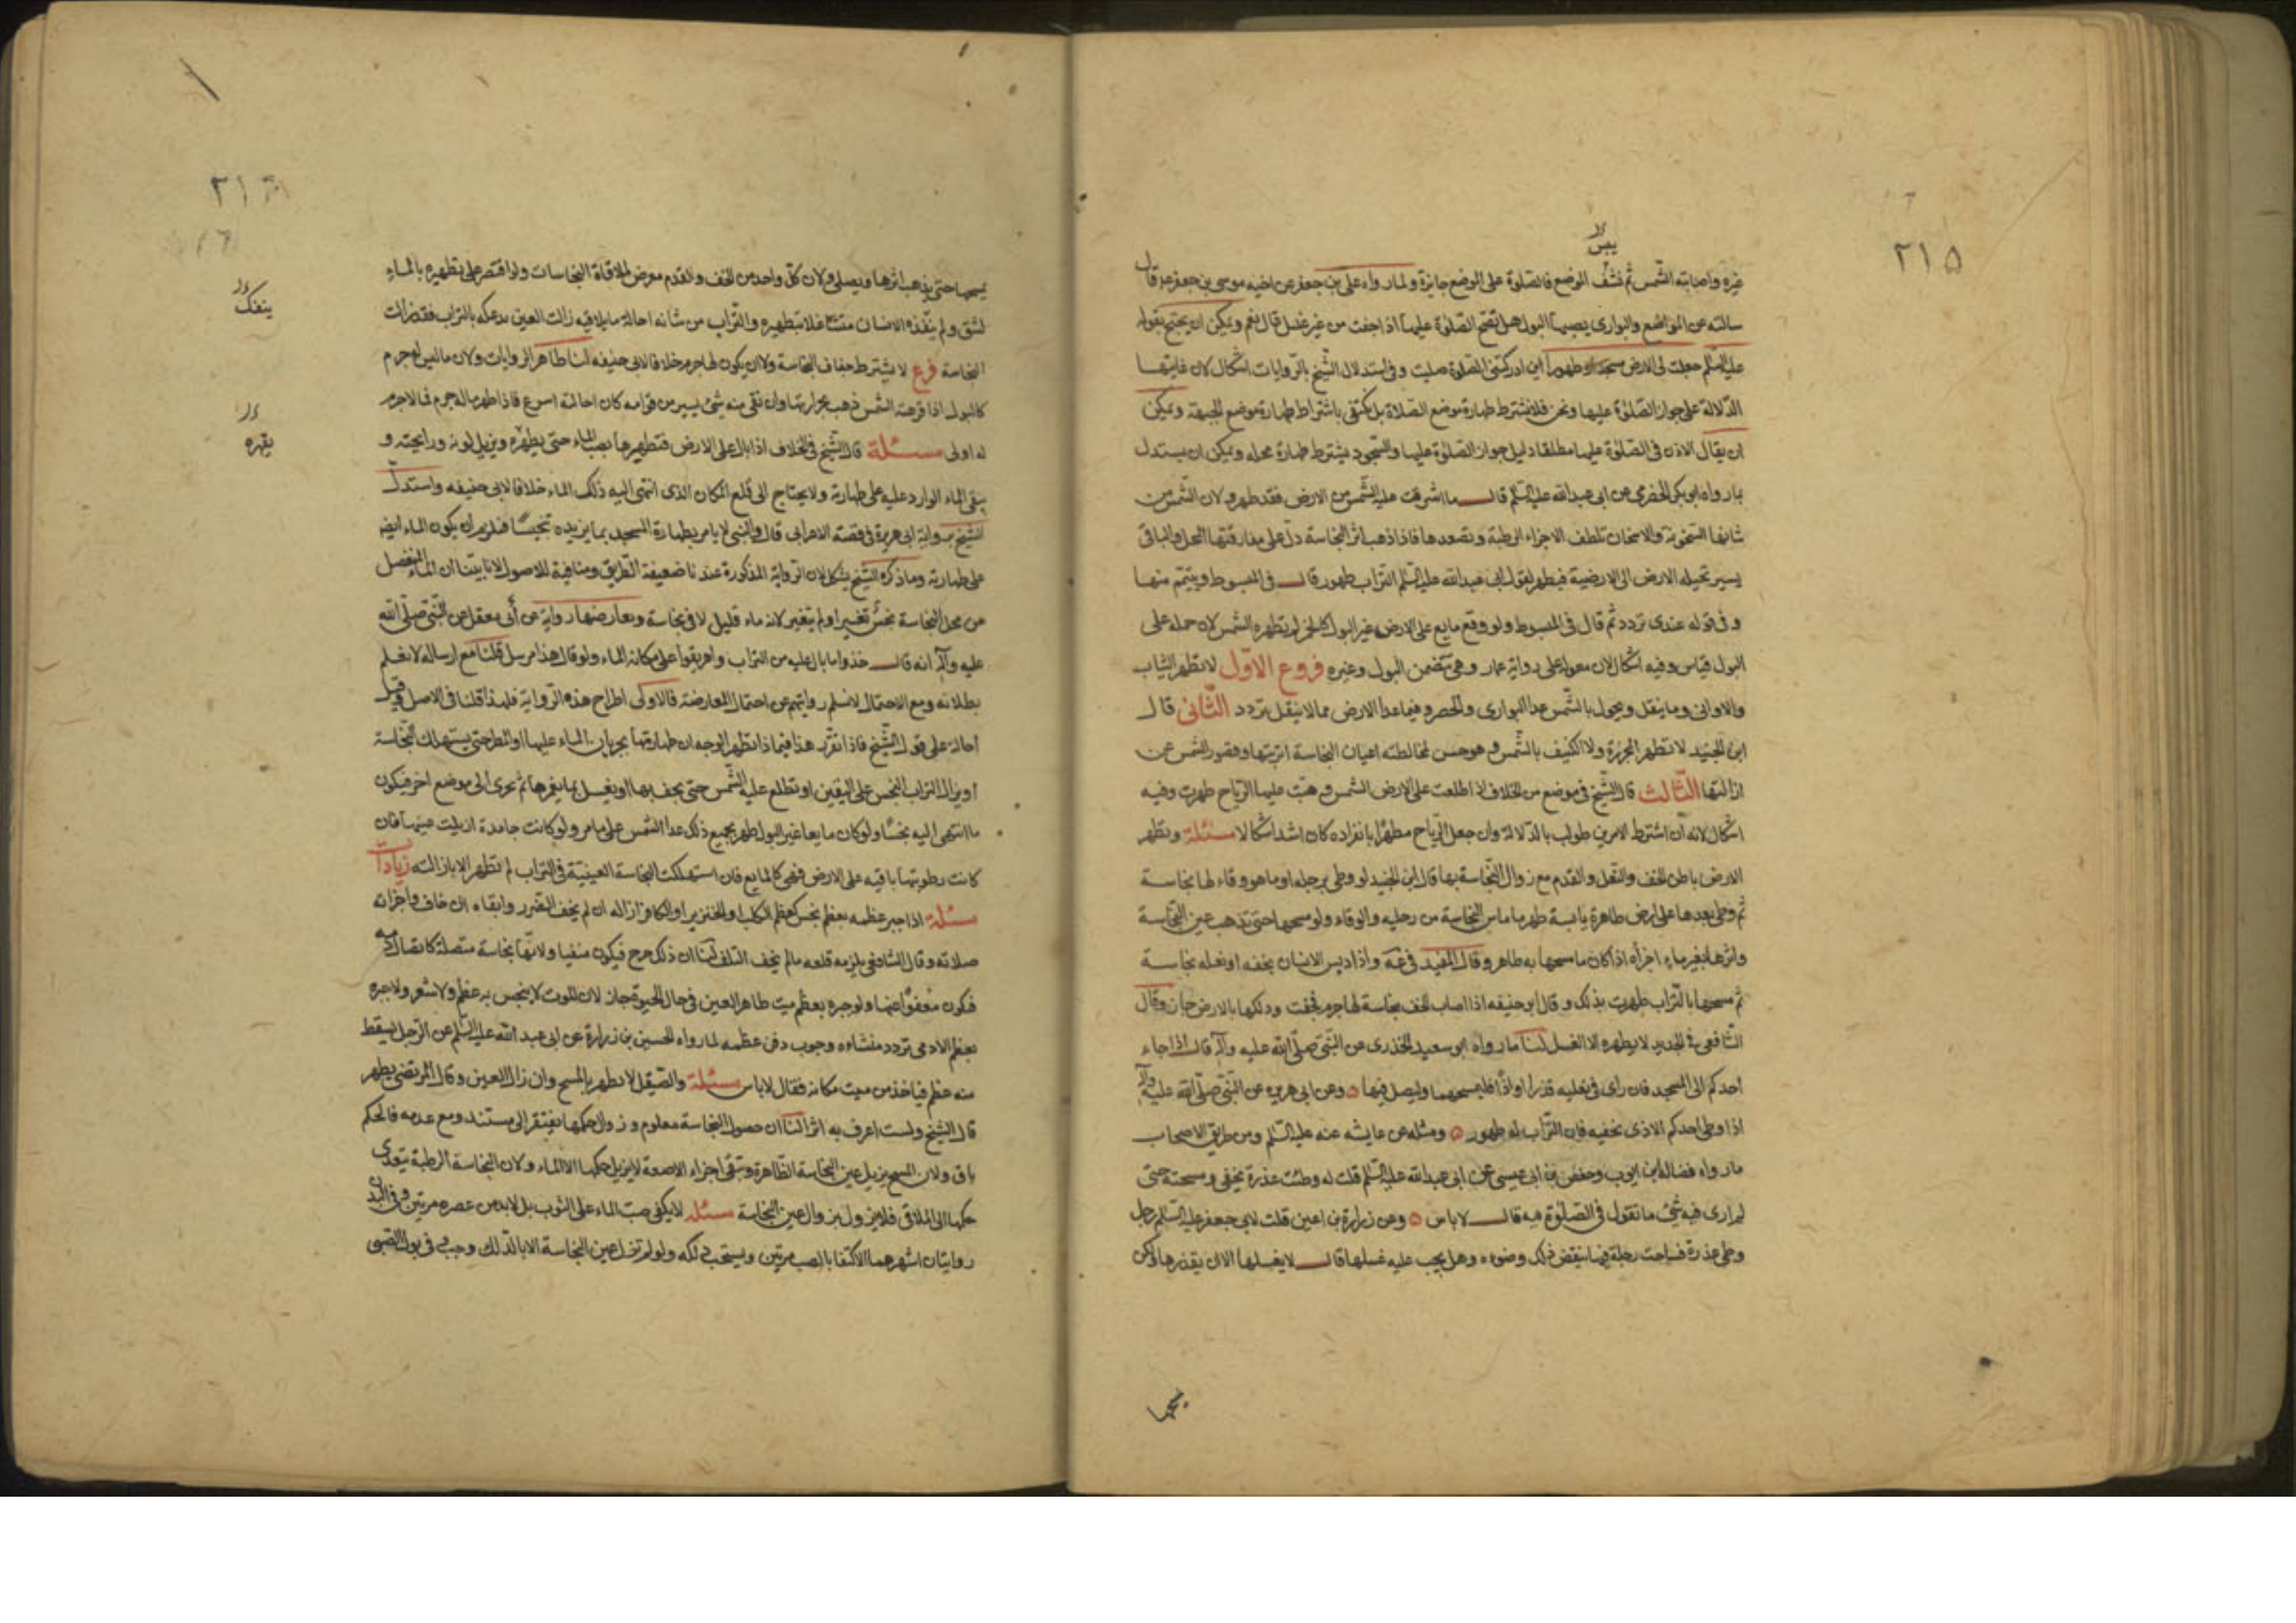 ٢١۵
يبس
غيره واصابته الشمس ثم نشف الموضع فالصلوة على الموضع جايزة ولما رواه على بن جعفر عن اخيه موسى بن جعفر ع قال
سالته عن المواضع والبوارى يصيبها البول هل تصح الصلوة عليها اذا جفت من غير غسل قال نعم ويمكن ان يحتج بقوله
عليه السلم جعلت لى الارض مسجدا وطهورا اين ادركتنى الصلوة صليت وفى استدلال الشيخ بالروايات اشكال لان غايتها
الدلالة على جواز الصلوة عليها ونحن فلا نشترط طهارة موضع الصلاة بل نكتفى باشتراط طهارة موضع الجبهة ويمكن
ان يقال الاذن فى الصلوة عليها مطلقا دليل جواز الصلوة عليها والسجود يشترط طهارة محله ويمكن ان يستدل
بما رواه ابو بكر الحضرمى عن ابى عبد الله عليه السلم قال ما اشرقت عليه الشمس من الارض فقد طهر ولان الشمس من
شانها السخونة والاسخان تلطف الاجزاء الرطبة وتصعدها فاذا ذهب اثر النجاسة دل على مفارقتها المحل والباقى
يسير تحيله الارض الى الارضية فيطهر لقول ابى عبد الله عليه السلم التراب طهور قال فى المبسوط ويتيمم منها
وفى قوله عندى تردد ثم قال فى المبسوط ولو وقع مايع على الارض غير البول كالخمر لم يطهره الشمس لان حمله على
البول قياس وفيه اشكال لان معوله على رواية عمار وهى تتضمن البول وغيره فروع الاول لا تطهر الثياب
والاوانى وما ينقل ويحول بالشمس عدا البوارى والحصر وفيما عدا الارض مما لا ينقل تردد الثانى قال
ابن الجنيد لا تطهر المجزرة ولا الكنيف بالشمس وهو حسن لمخالطته اعيان النجاسة اتربتها وقصور الشمس عن
ازالتها الثالث قال الشيخ فى موضع من الخلاف اذا طلعت على الارض الشمس وهبت عليها الرياح طهرت وفيه
اشكال لانه ان اشترط الامرين طولب بالدلالة وان جعل الرياح مطهرا بانفراده كان اشد اشكالا مسئلة وتطهر
الارض باطن الخف والنعل والقدم مع زوال النجاسة بها قال ابن الجنيد لو وطى برجله او ما هو وقاء لها نجاسة
ثم وطى بعدها على ارض طاهرة يابسة طهر ما ماس النجاسة من رجليه والوقاء ولو مسحها حتى تذهب عين النجاسة
واثرها بغير ماء اجزأه اذا كان ما مسحها به طاهر وقال المفيد فى عه واذا ديس الانسان بخفه او نعله نجاسة
ثم مسحها بالتراب طهرت بذلك وقال ابو حنيفه اذا اصاب الخف نجاسة لها جرم فجفت ودلكها بالارض جاز وقال
الشافعى فى الجديد لا يطهره الا الغسل لنا ما رواه ابو سعيد الخذرى عن النبى صلى الله عليه وآله قال اذا جاء
احدكم الى المسجد فان راى فى نعليه قذرا او اذًا فليمسحهما وليصل فيها ۞ وعن ابى هريره عن النبى صلى الله عليه وآله
اذا وطى احدكم الاذى بخفيه فان التراب له طهور ۞ ومثله عن عايشه عنه عليه السلم ومن طريق الاصحاب
ما رواه فضاله ابن ايوب وحفص بن ابى عيسى عن ابى عبد الله عليه السلم قلت له وطئت عذرة بخفى ومسحته حتى
لم ارى فيه شئ ما تقول فى الصلوة فيه قال لا باس ۞ وعن زرارة بن اعين قلت لابى جعفر عليه السلم رجل
وطى عذرة فساخت رجله فيها اينقض ذلك وضوءه وهل يجب عليه غسلها قال لا يغسلها الا ان يقذرها ولكن
يمسحها
٢١٦
ينفك
يقهره
يمسحها حتى يذهب اثرها ويصلى ولان كل واحد من الخف والقدم معرض لملاقاة النجاسات ولو اقتصر على تطهيره بالماء
لشق ولم ينفذه الانسان متشاغلا بتطهيره والتراب من شانه احالة ما يلاقيه زالت العين بدعكه بالتراب فقد زالت
النجاسة فرع لا يشترط جفاف النجاسة ولا ان يكون لها جرم خلافا لابى حنيفه لنا ظاهر الروايات ولان ما ليس له جرم
كالبول اذا قرعته الشمس ذهب بحرارتها وان بقى منه شئ يسير من قوامه كان احالته اسرع فاذا طهر ما له جرم فما لا جرم
له اولى مسئلة قال الشيخ فى الخلاف اذا بال على الارض فتطهيرها بصب الماء حتى يطهره ويزيل لونه ورايحته و
يبقى الماء الوارد عليه على طهارته ولا يحتاج الى قلع المكان الذى انتهى اليه ذلك الماء خلافا لابى حنيفه واستدل
الشيخ برواية ابى هريرة فى قصة الاعرابى قال والنبى لا يامر بطهارة المسجد بما يزيده تنجيسًا فلزم ان يكون الماء ايضا
على طهارته وما ذكره الشيخ يشكل لان الرواية المذكورة عندنا ضعيفة الطريق ومنافية للاصول لانا بيّنا ان الماء المنفصل
من محل النجاسة نجس تغير او لم يتغير لانه ماء قليل لاقى نجاسة ويعارضها رواية عن أبى معقل عن النبى صلى الله
عليه وآله انه قال خذوا ما بال عليه من التراب واهريقوا على مكانه الماء ولو قال هذا مرسل قلنا مع ارساله لا نعلم
بطلانه ومع الاحتمال لا نسلم روايتهم عن احتمال المعارضة فالاولى اطراح هذه الرواية فلهذا قلنا فى الاصل وقيل
احاله على قول الشيخ فاذا تقرر هذا فيماذا تطهر الوجه ان طهارتها بجريان الماء عليها او المطر حتى يستهلك النجاسة
او يزال التراب النجس على اليقين او تطلع عليه الشمس حتى يجف بها او يغسل بما يغمرها ثم يجرى الى موضع اخر فيكون
ما انتهى اليه نجسًا ولو كان مايعا غير البول طهر بجميع ذلك عدا الشمس على ما مر ولو كانت جامدة ازيلت عينها فان
كانت رطوبتها باقيه على الارض فهى كالمايع فان استهلكت النجاسة العينية فى التراب لم تطهر الا بازالته زيادات
مسئلة اذا جبر عظمه بعظم نجس كعظم الكلب او الخنزير او الكافر ازاله ان لم يخف الضرر وابقاه ان خاف واجزاته
صلاته وقال الشافعى يلزمه قلعه مالم يخف التلف لنا ان ذلك حرج فيكون منفيا ولانها نجاسة متصلة كاتصال دمه
فيكون معفوًا عنها ولو جبره بعظم ميت طاهر العين فى حال الحيوة جاز لان الموت لا ينجس به عظم ولا شعر ولو جبره
بعظم الادمى تردد منشاءه وجوب دفن عظمه لما رواه الحسين بن زرارة عن ابى عبد الله عليه السلم عن الرجل يسقط
منه عظم فياخذ من ميت مكانه فقال لا باس مسئلة والصيقل لا يطهر بالمسح وان زال العين وقال المرتضى يطهر
قال الشيخ ولست اعرف به اثر لنا ان حصول النجاسة معلوم وزوال حكمها يفتقر الى مستند ومع عدمه فالحكم
باق ولان المسح يزيل عين النجاسة الظاهرة وتبقى اجزاء لاصقة لا يزيل حكمها الا الماء ولان النجاسة الرطبة يتعدى
حكمها الى الملاقى فلا يزول بزوال عين النجاسة مسئله لا يكفى صب الماء على الثوب بل لا بد من عصره مرتين وفى البدن
روايتان اشهرهما الاكتفا بالصب مرتين ويستحب دلكه ولو لم تزل عين النجاسة الا بالدلك وجب وفى بول الصبى